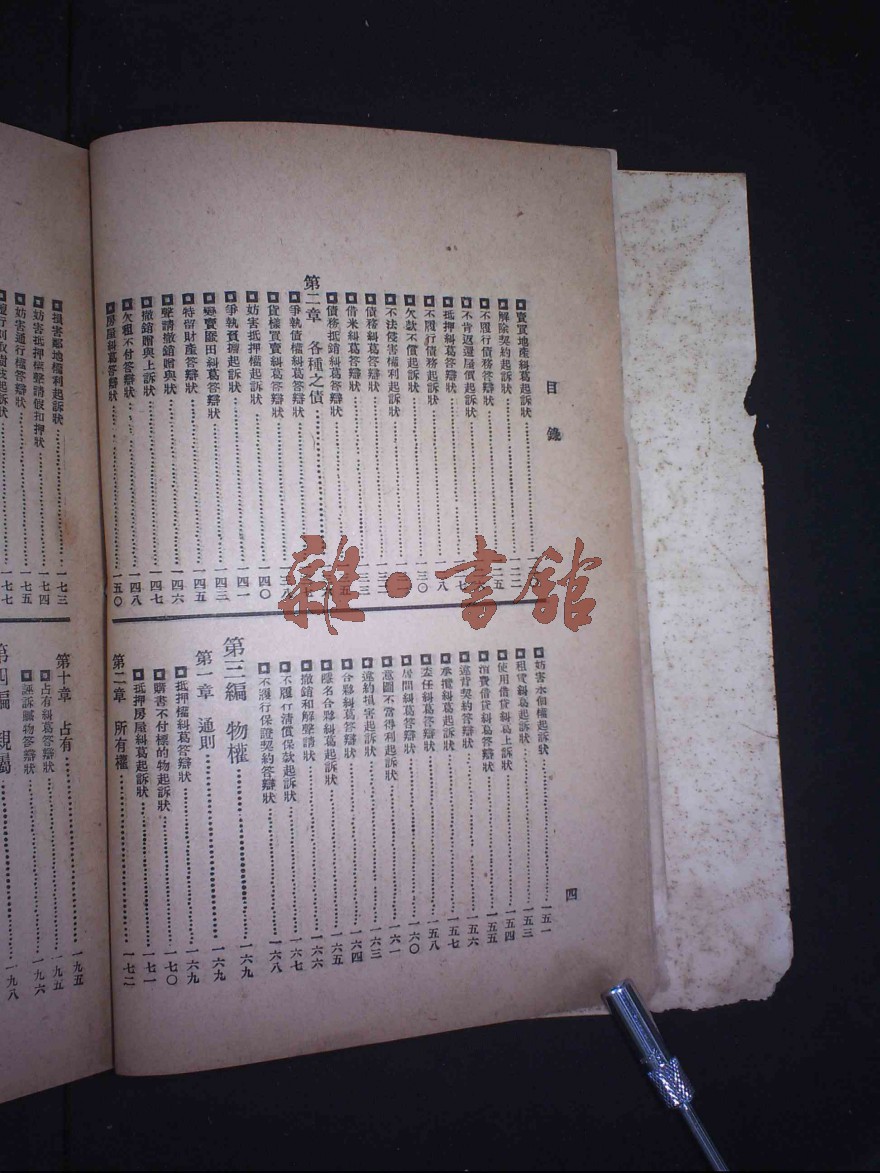 目錄
賣買地產糾葛起訴狀
解除契約起訴狀
不履行債務答辯狀
不肯返還屋價起訴狀
抵押糾葛答辯狀
不履行債務起訴狀
欠款不償起訴狀
不法侵害權利起訴狀
債務糾葛答辯狀
借米糾葛答辯狀
債務抵銷糾葛答辯狀
第二章 各種之債
爭執債權糾葛答辯狀
貨樣買賣糾葛起訴狀
妨害抵押權起訴狀……一四〇
爭執賓壇起訴狀……一四一
專賣廠田糾葛答辯狀……一四三
特留財產答辯狀……一四五
聲請撤銷贈與狀……一四六
撤銷贈與上訴狀……一四七
欠租不付答辯狀……一四八
房屋糾葛答辯狀……一五〇
妨害水佃權起訴狀……一五一
租賃糾葛起訴狀……一五三
使用借貸糾葛上訴狀……一五四
消費借貸糾葛答辯狀……一五五
違背契約答辯狀……一五六
承攬糾葛起訴狀……一五七
委任糾葛答辯狀……一五八
居間糾葛答辯狀……一六〇
意圖不當得利起訴狀……一六一
違約損害起訴狀……一六三
合夥糾葛答辯狀……一六四
隱名合夥糾葛起訴狀……一六五
撤銷和解聲請狀……一六六
不履行清償保款起訴狀……一六七
不履行保證契約答辯狀……一六八
第三編 物權……一六九
第一章 通則……一六九
抵押權糾葛答辯狀……一六九
購書不付標的物起訴狀……一七〇
抵押房屋糾葛起訴狀……一七一
第二章 所有權……一七二
四
損害鄰地權利起訴狀……一七三
妨害抵押權聲請假扣押狀……一七四
妨害通行權答辯狀……一七五
一七七
第十章 占有……一九五
占有糾葛答辯狀……一九五
誣訴贓物答辯狀……一九六
第四編 親屬……一九八
雜·書館